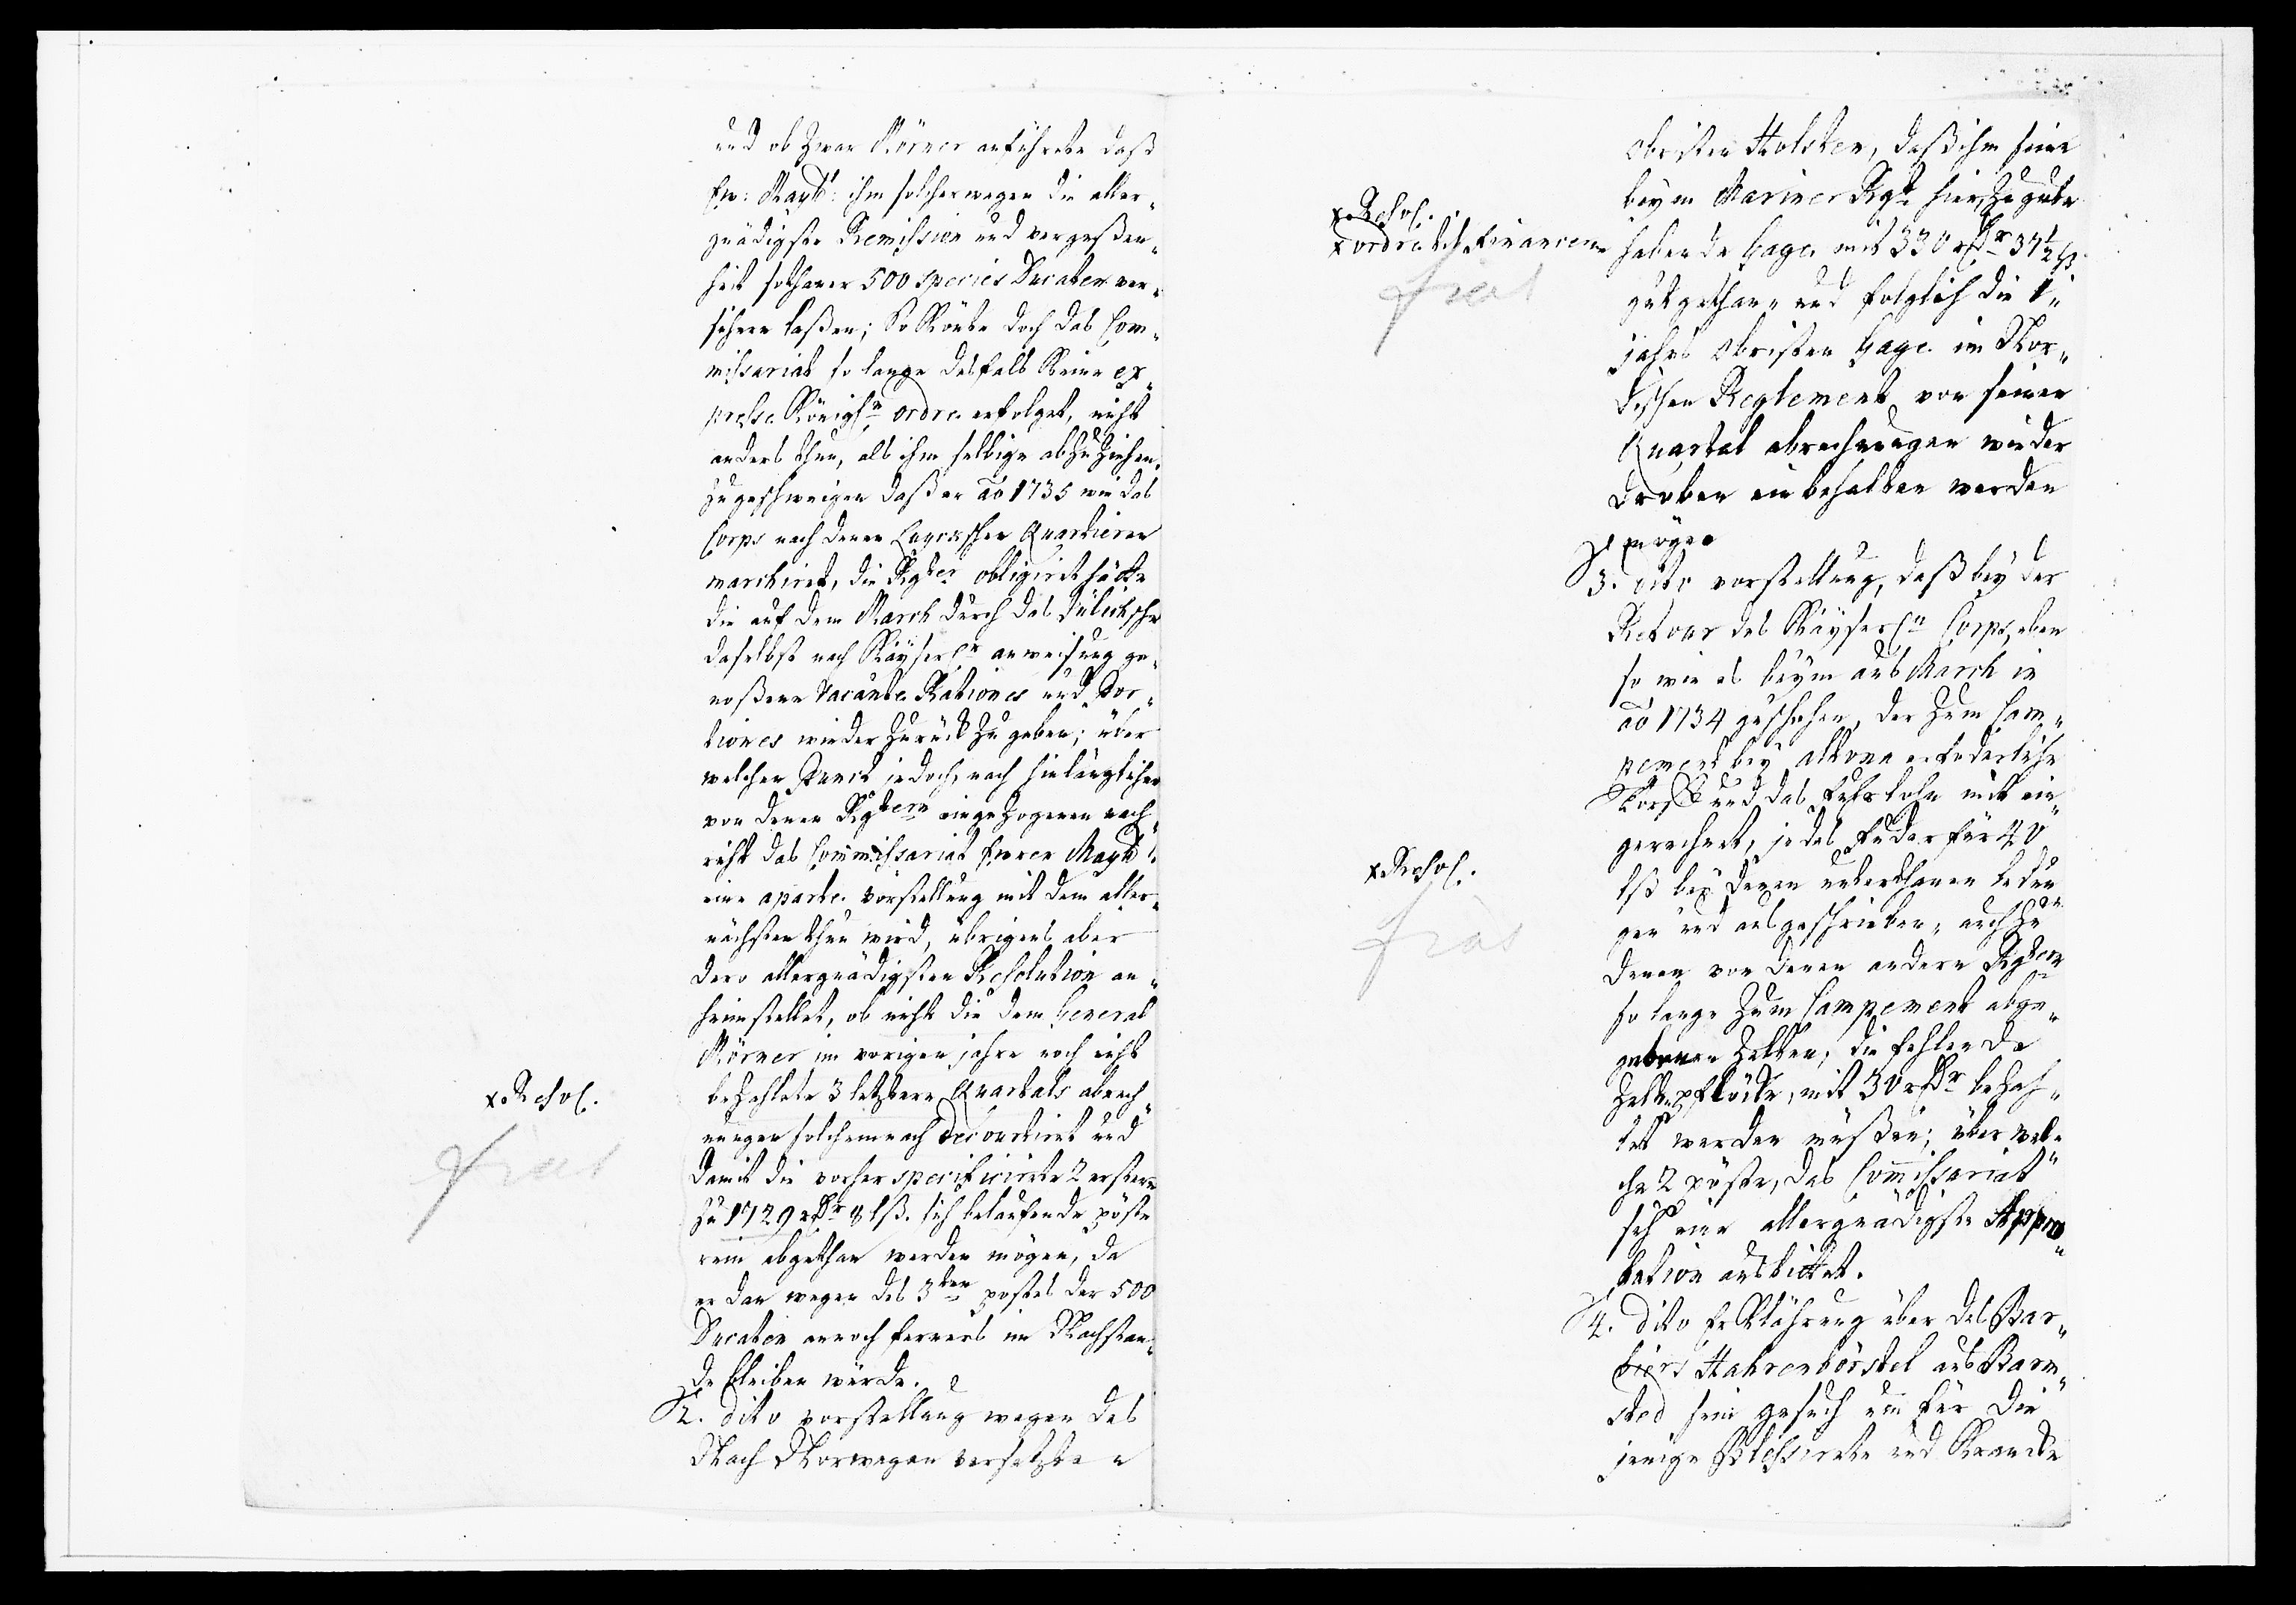 und ob zwar Mörner anführete daß
Ew: Maytt: ihm solcherwegen die aller„
gnädigste Remission und vergeßen„
heit sothaner 500 species Ducaten ver„
sichern laßen; So könte doch das Com„
missariat so lange desfals keine ex„
presse Königl. ordre erfolget, nicht
anders thun, als ihm selbige abzuziehen.
zu geschweigen daß er aõ 1735 wie das
Corps nach denen Quartieren
marchiret, die Rgter obligiret hätte
die auf dem March durch das Jülichsche
daselbst nach Käyserl. anweisung ge„
noßene vacante Rationes und Por„
tiones wieder zurück zu geben; über
welchen Punct jedoch, nach hinlänglicher
von denen Rgtern eingezogenen nach„
richt das Commissariat Eurer Maytt
eine aparte vorstellung mit dem aller„
nächsten thun wird, übrigens aber
dero allergnädigsten Resolution an„
heimstellet, ob nicht die dem General
Mörner im vorigen jahre noch nicht
bezahlete 3 letztere Quartals abrech„
nungen solchemnach decourtiret und
damit die vorher specificirte 2 erstere
zu 1729 rdr 8 lß. sich belaufende pöste
rein abgethan werden mögen, da
er dan wegen des 3ten postes der 500
Ducaten annoch ferners im Nachstan„
de bleiben würde.
x Resol.
frat
2. dito vorstellung wegen des
Nach Norwegen versetzten
Obristen Holsten, daß ihm seine
beym Mariner Rgt hier zu gute
x Resol.
x ordre ad Financen
frat
habende Gage mit 330 rdr 37½ ß
gutgethan„ und folglich die 1„
jahrs Obristen Gage im Nor„
dischen Reglement von seinen
Quartal abrechnungen wieder
droben einbehalten werden
möge
3. dito vorstellung, daß bey der
Retour des Käyserln Corps, eben
so wie es beym aus March in
aõ 1734 geschehen, der zum Cam„
pement bey Altona erfoderliche
Torff und das fuhrlohn mit ein„
gerechnet, jedes Fuder für 40
lß bey denen unterthanen bedun„
gen und ausgeschrieben„ auch zu
denen von denen andern Rgtern
so lange zum Campement abge„
gebenen Zelten, die fehlende
Zeltpflöcke, mit 30 rdr bezah„
let werden müßen; über wel„
che 2 pöste, das Commissariat
sich eine allergnädigste Appro„
bation ausbittet.
x Resol.
fras
4. dito Erklährung über des Bar„
biers Hahrenbörstel aus Barm„
sted sein gesuch um für die
jenige Blessirete und Krancke